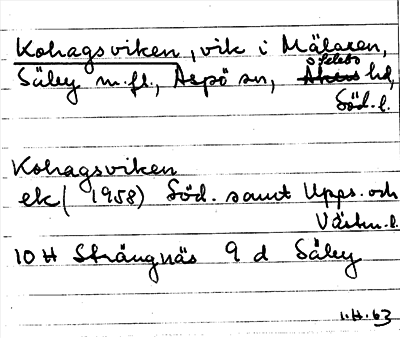 Kohagsviken, vik i Mälaren,
Selebo
Säby m.fl., Aspö sn, Åkers hd,
Söd. l.
Kohagsviken
ek (1958) Söd. samt Upps. och
Västm. l.
10 H Strängnäs 9 d Säby
1.H.63